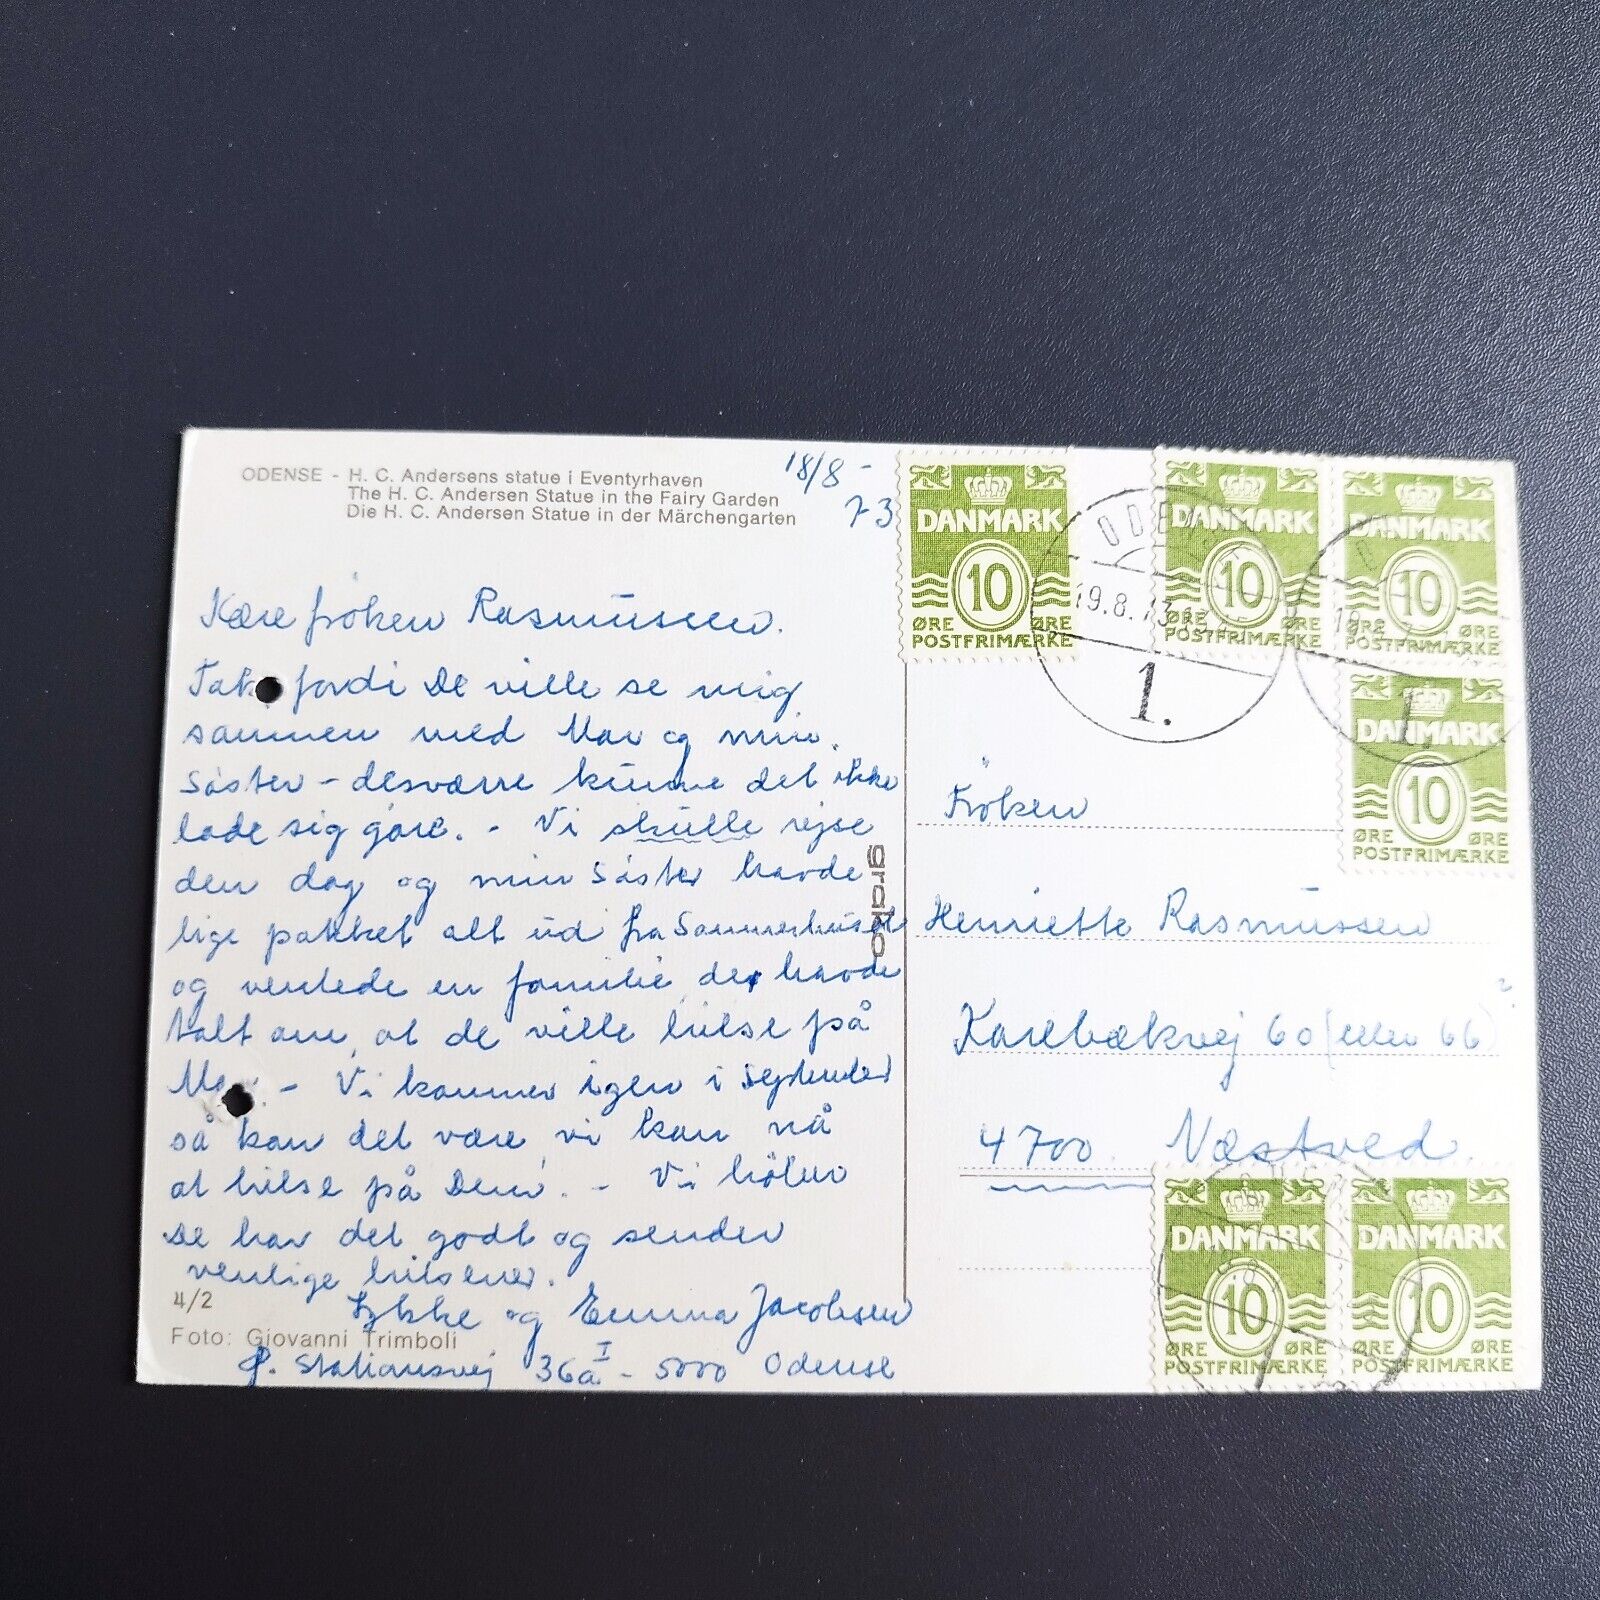 ODENSE - H. C. Andersens statue i Eventyrhaven
The H. C. Andersen Statue in the Fairy Garden
Die H. C. Andersen Statue in der Märchengarten
18/8 -
73
Kære fröken Rasmussen.
Tak fordi De ville se mig
sammen med Mor og min
Söster - desværre kunne det ikke
lade sig göre. - Vi skulle rejse
den dag og min Söster havde
lige pakket alt ud fra Sommerhuset
og ventede en familie der havde
talt om, at de ville hilse på
Mor. - Vi kommer igen i September
så kan det være vi kan nå
at hilse på Dem. - Vi håber
De har det godt og sender
venlige hilsener.
og Emma Jacobsen
Stationsvej 36a I - 5000 Odense
4/2
Foto: Giovanni Trimboli
grako
DANMARK
10
ØRE ØRE
POSTFRIMÆRKE
DANMARK
10
ØRE ØRE
POSTFRIMÆRKE
DANMARK
10
ØRE
POSTFRIMÆRKE
DANMARK
10
ØRE ØRE
POSTFRIMÆRKE
ODENSE
19.8.73
1.
Fröken
Henriette Rasmussen
Karebækvej 60 (eller 66)?
4700 Næstved.
DANMARK
10
ØRE ØRE
POSTFRIMÆRKE
DANMARK
10
ØRE ØRE
POSTFRIMÆRKE